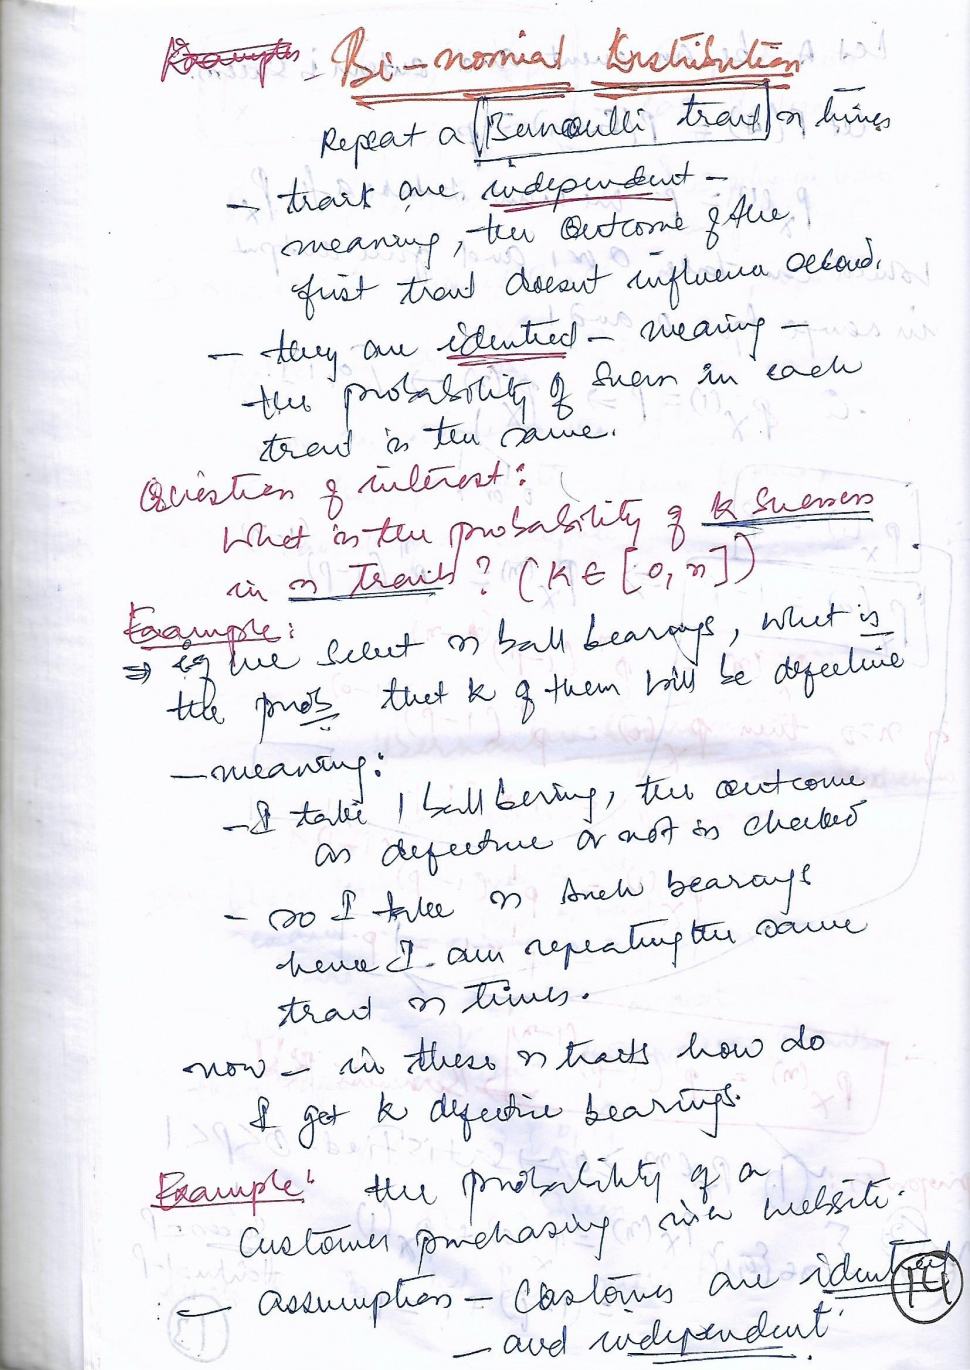 Examples - Bi-nomial Distribution
Repeat a Bernoulli trail n times
- trails are independent -
meaning, the outcome of the
first trail doesnt influence second.
- they are identical - meaning -
the probability of success in each
trail is the same.
Question of interest:
What is the probability of k Success
in n Trails? (K ∈ [0, n])
Example:
⇒ if we select n ball bearings, what is
the prob that k of them will be defective
- meaning:
- I take 1 ball bering, the outcome
as defective or not is checked
- so I take n such bearings
hence I am repeating the same
trail n times.
now - in these n trails how do
I get k defective bearings.
Example: the probability of a
Customer purchasing in a website.
- assumption - Customers are identical
- and independent
14